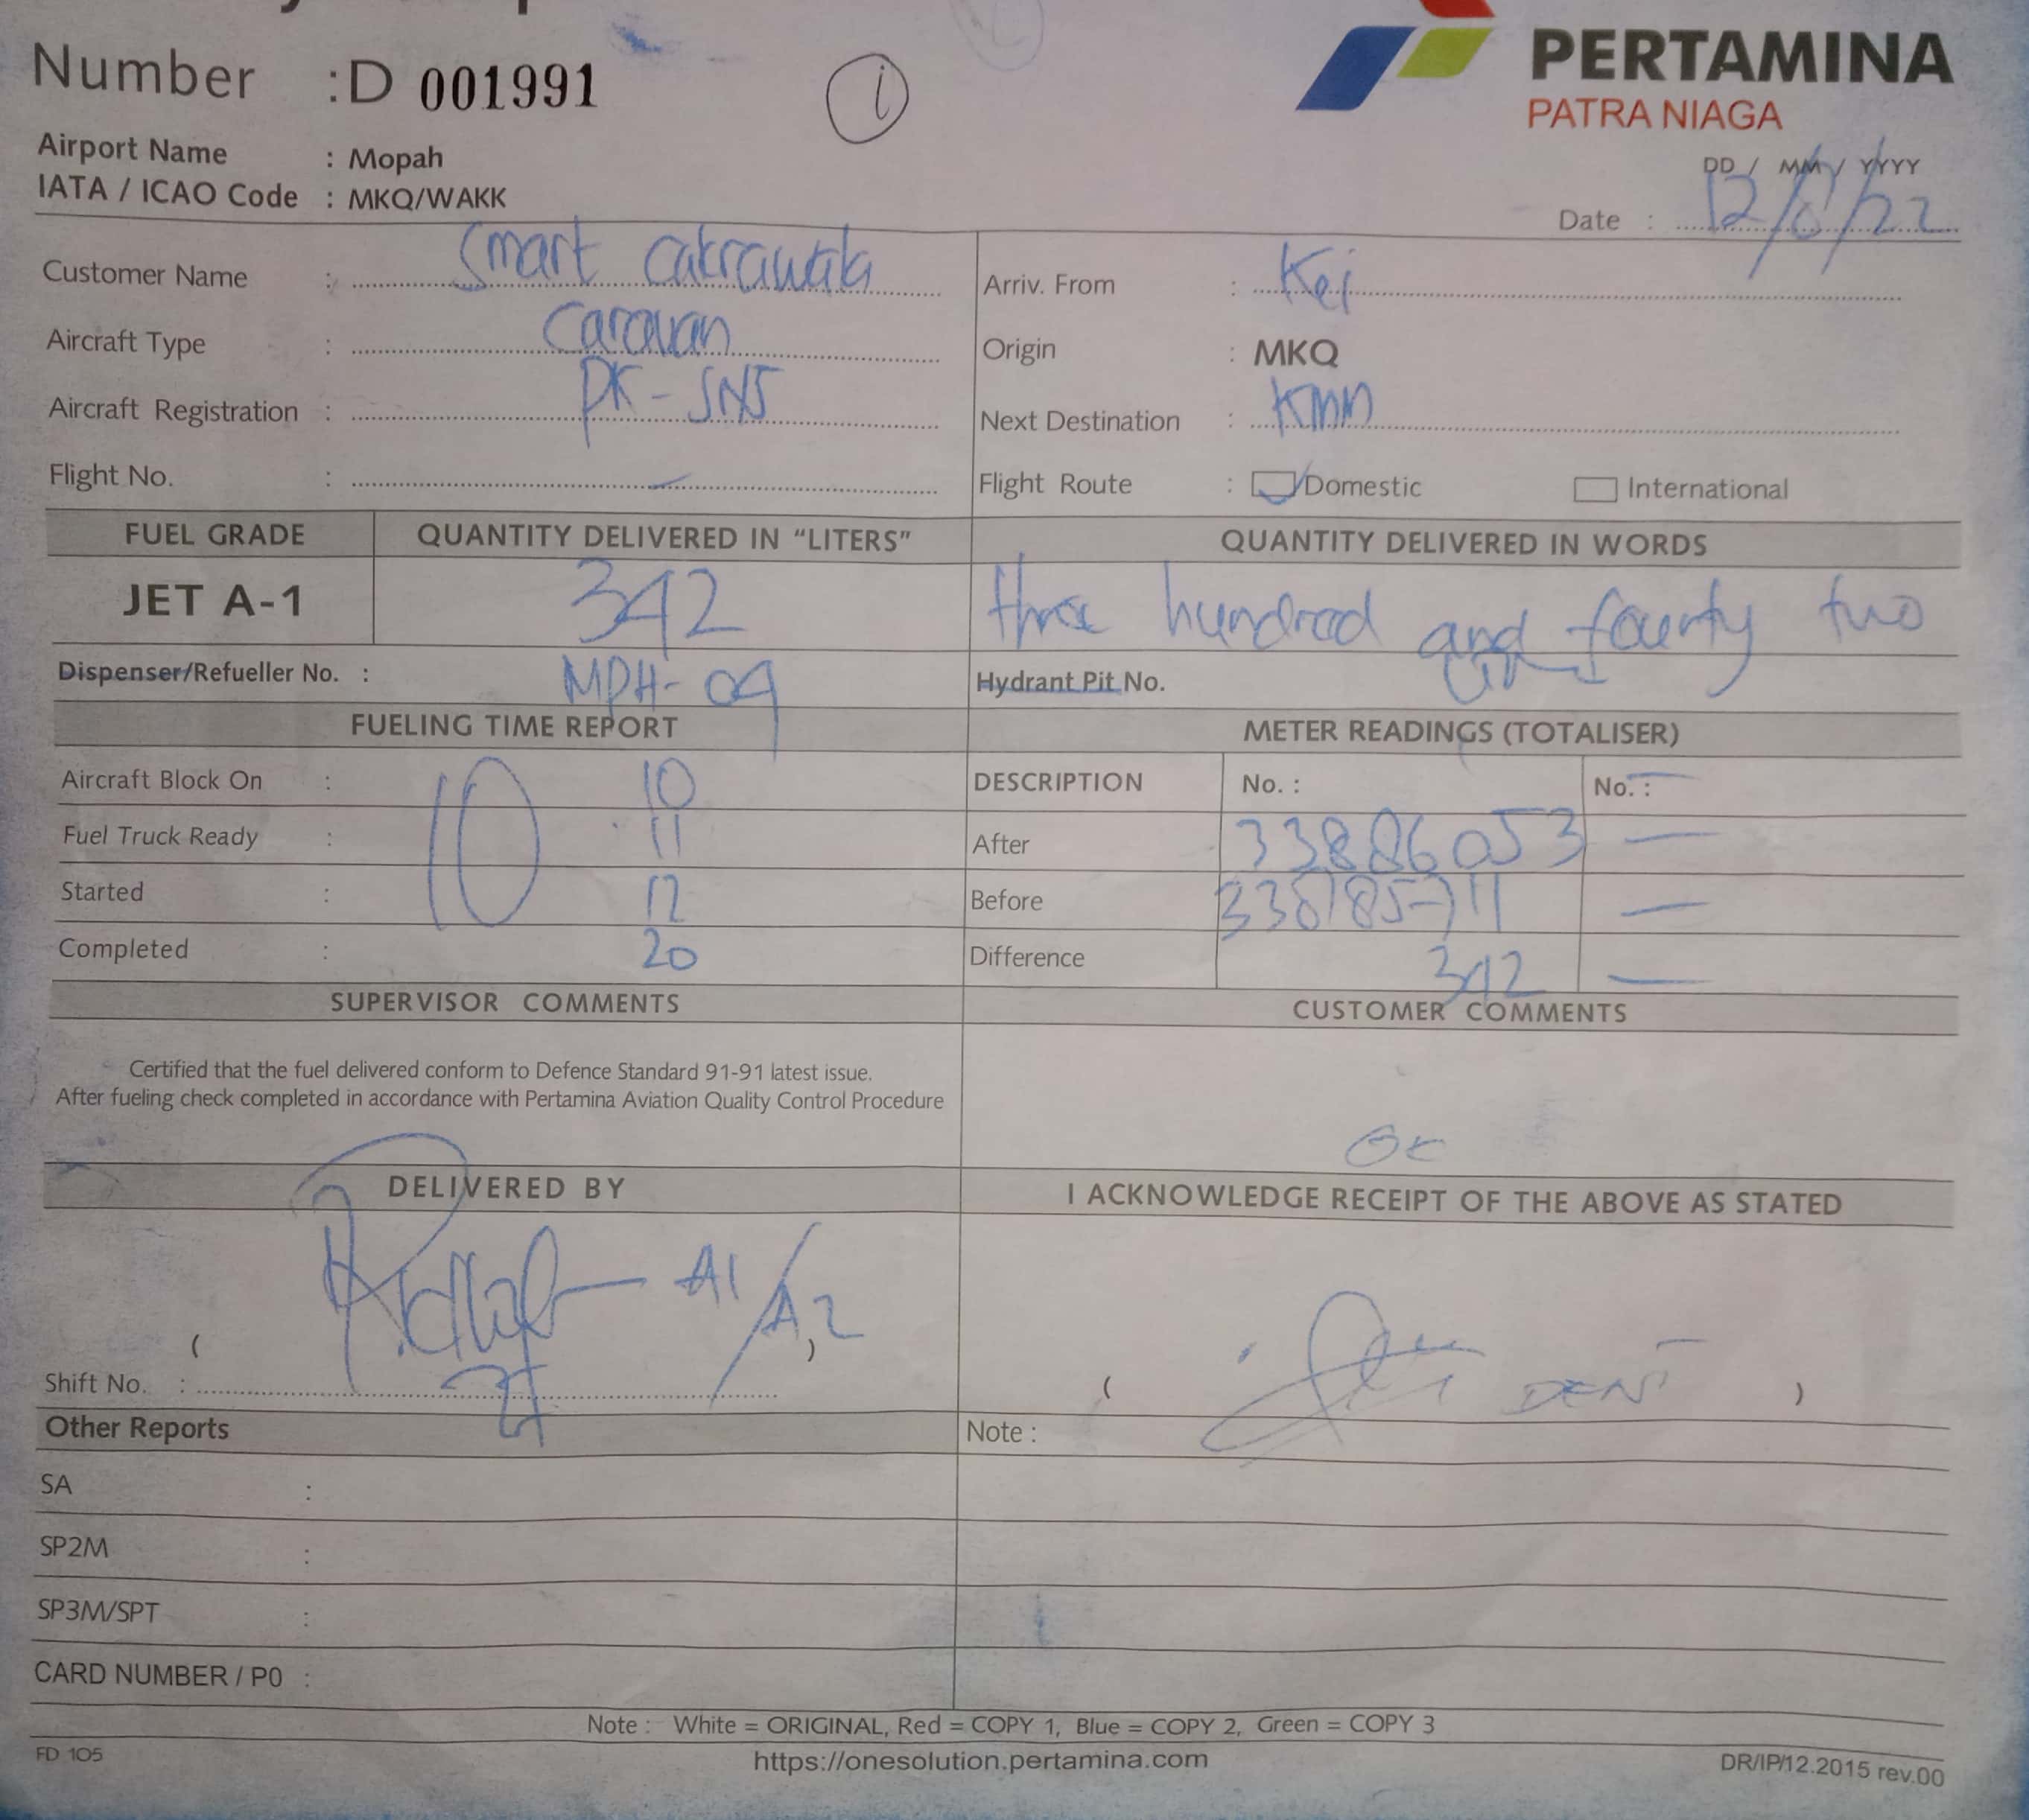 Number : D 001991
i
PERTAMINA
PATRA NIAGA
Airport Name : Mopah
IATA / ICAO Code : MKQ/WAKK
DD / MM / YYYY
Date :
Customer Name : Smart Cakrawala
Aircraft Type : Caravan
Aircraft Registration : PK-SNJ
Flight No. : –
Arriv. From : Kei
Origin : MKQ
Next Destination : Kmm
Flight Route : Domestic International
FUEL GRADE QUANTITY DELIVERED IN “LITERS” QUANTITY DELIVERED IN WORDS
JET A-1 342 three hundred and fourty two
Dispenser/Refueller No. : MPH-09 Hydrant Pit No.
FUELING TIME REPORT METER READINGS (TOTALISER)
Aircraft Block On : 10 10 DESCRIPTION No. : No. : –
Fuel Truck Ready : 11 After 33886053 –
Started : 12 Before –
Completed : 20 Difference 342 –
SUPERVISOR COMMENTS CUSTOMER COMMENTS
Certified that the fuel delivered conform to Defence Standard 91-91 latest issue.
After fueling check completed in accordance with Pertamina Aviation Quality Control Procedure
OK
DELIVERED BY I ACKNOWLEDGE RECEIPT OF THE ABOVE AS STATED
A1/A2
( )
Shift No. :
( DENI )
Other Reports Note :
SA :
SP2M :
SP3M/SPT :
CARD NUMBER / P0 :
Note : White = ORIGINAL, Red = COPY 1, Blue = COPY 2, Green = COPY 3
FD 105 https://onesolution.pertamina.com DR/IP/12.2015 rev.00